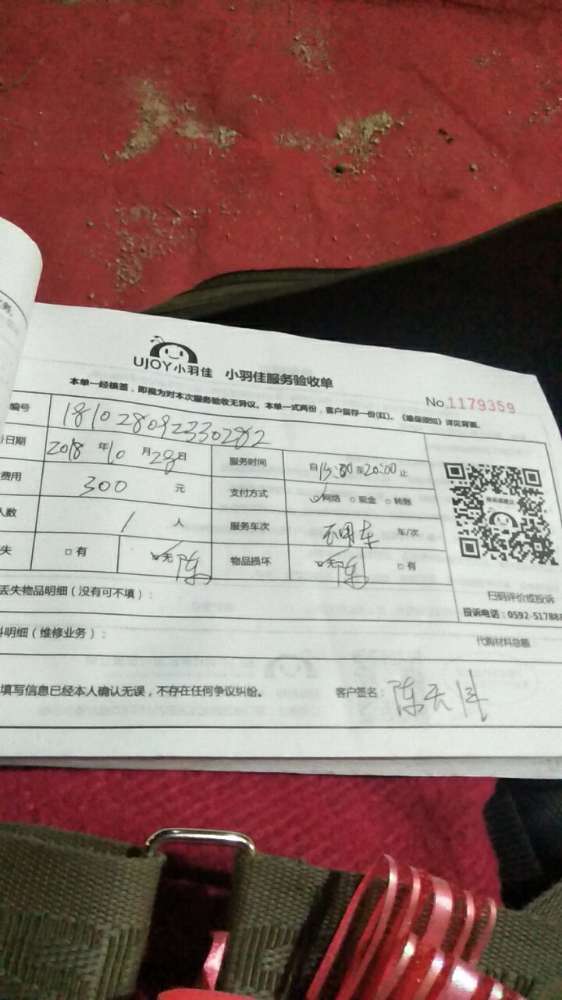 UJOY小羽佳 小羽佳服务验收单
本单一经横签，即视为对本次服务验收无异议。本单一式两份，客户留存一份(红)。
No.1179359
编号 181028092330282
日期 2018年10月28日 服务时间 自13:00至20:00止
费用 300元 支付方式 网络 □现金 □转账
人数 1人 服务车次 不用车 车/次
失 □有 无 陈 物品损坏 无 陈 □有
丢失物品明细（没有可不填）：
扫码评价或投诉
投诉电话：0592-51788
料明细（维修业务）：
代购材料总额
填写信息已经本人确认无误，不存在任何争议纠纷。 客户签名：